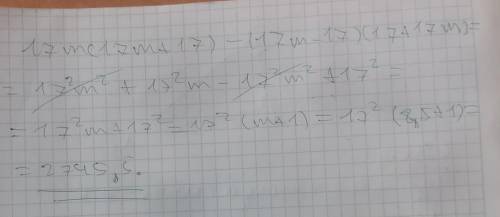 17m(17m+17) - (17m-17)(17+17m)=
= 17²m² + 17²m - 17²m² + 17² =
= 17²m+17² = 17² (m+1) = 17² (8,5+1)=
= 2745,5.